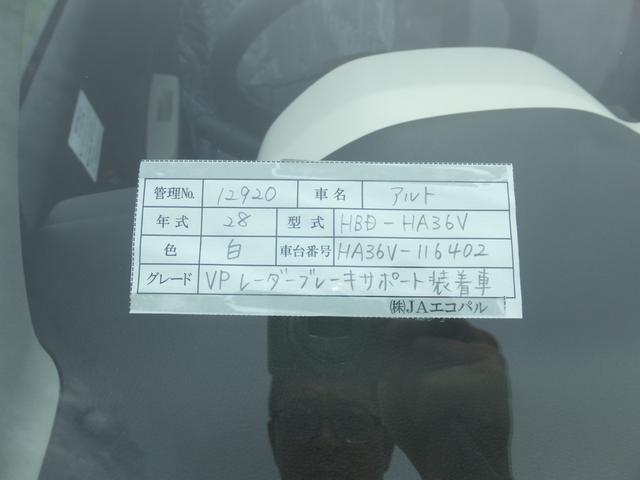 管理No. 12920 車名 アルト
年式 28 型式 HBD-HA36V
色 白 車台番号 HA36V-116402
グレード VP レーダーブレーキサポート装着車
(株)JAエコパル